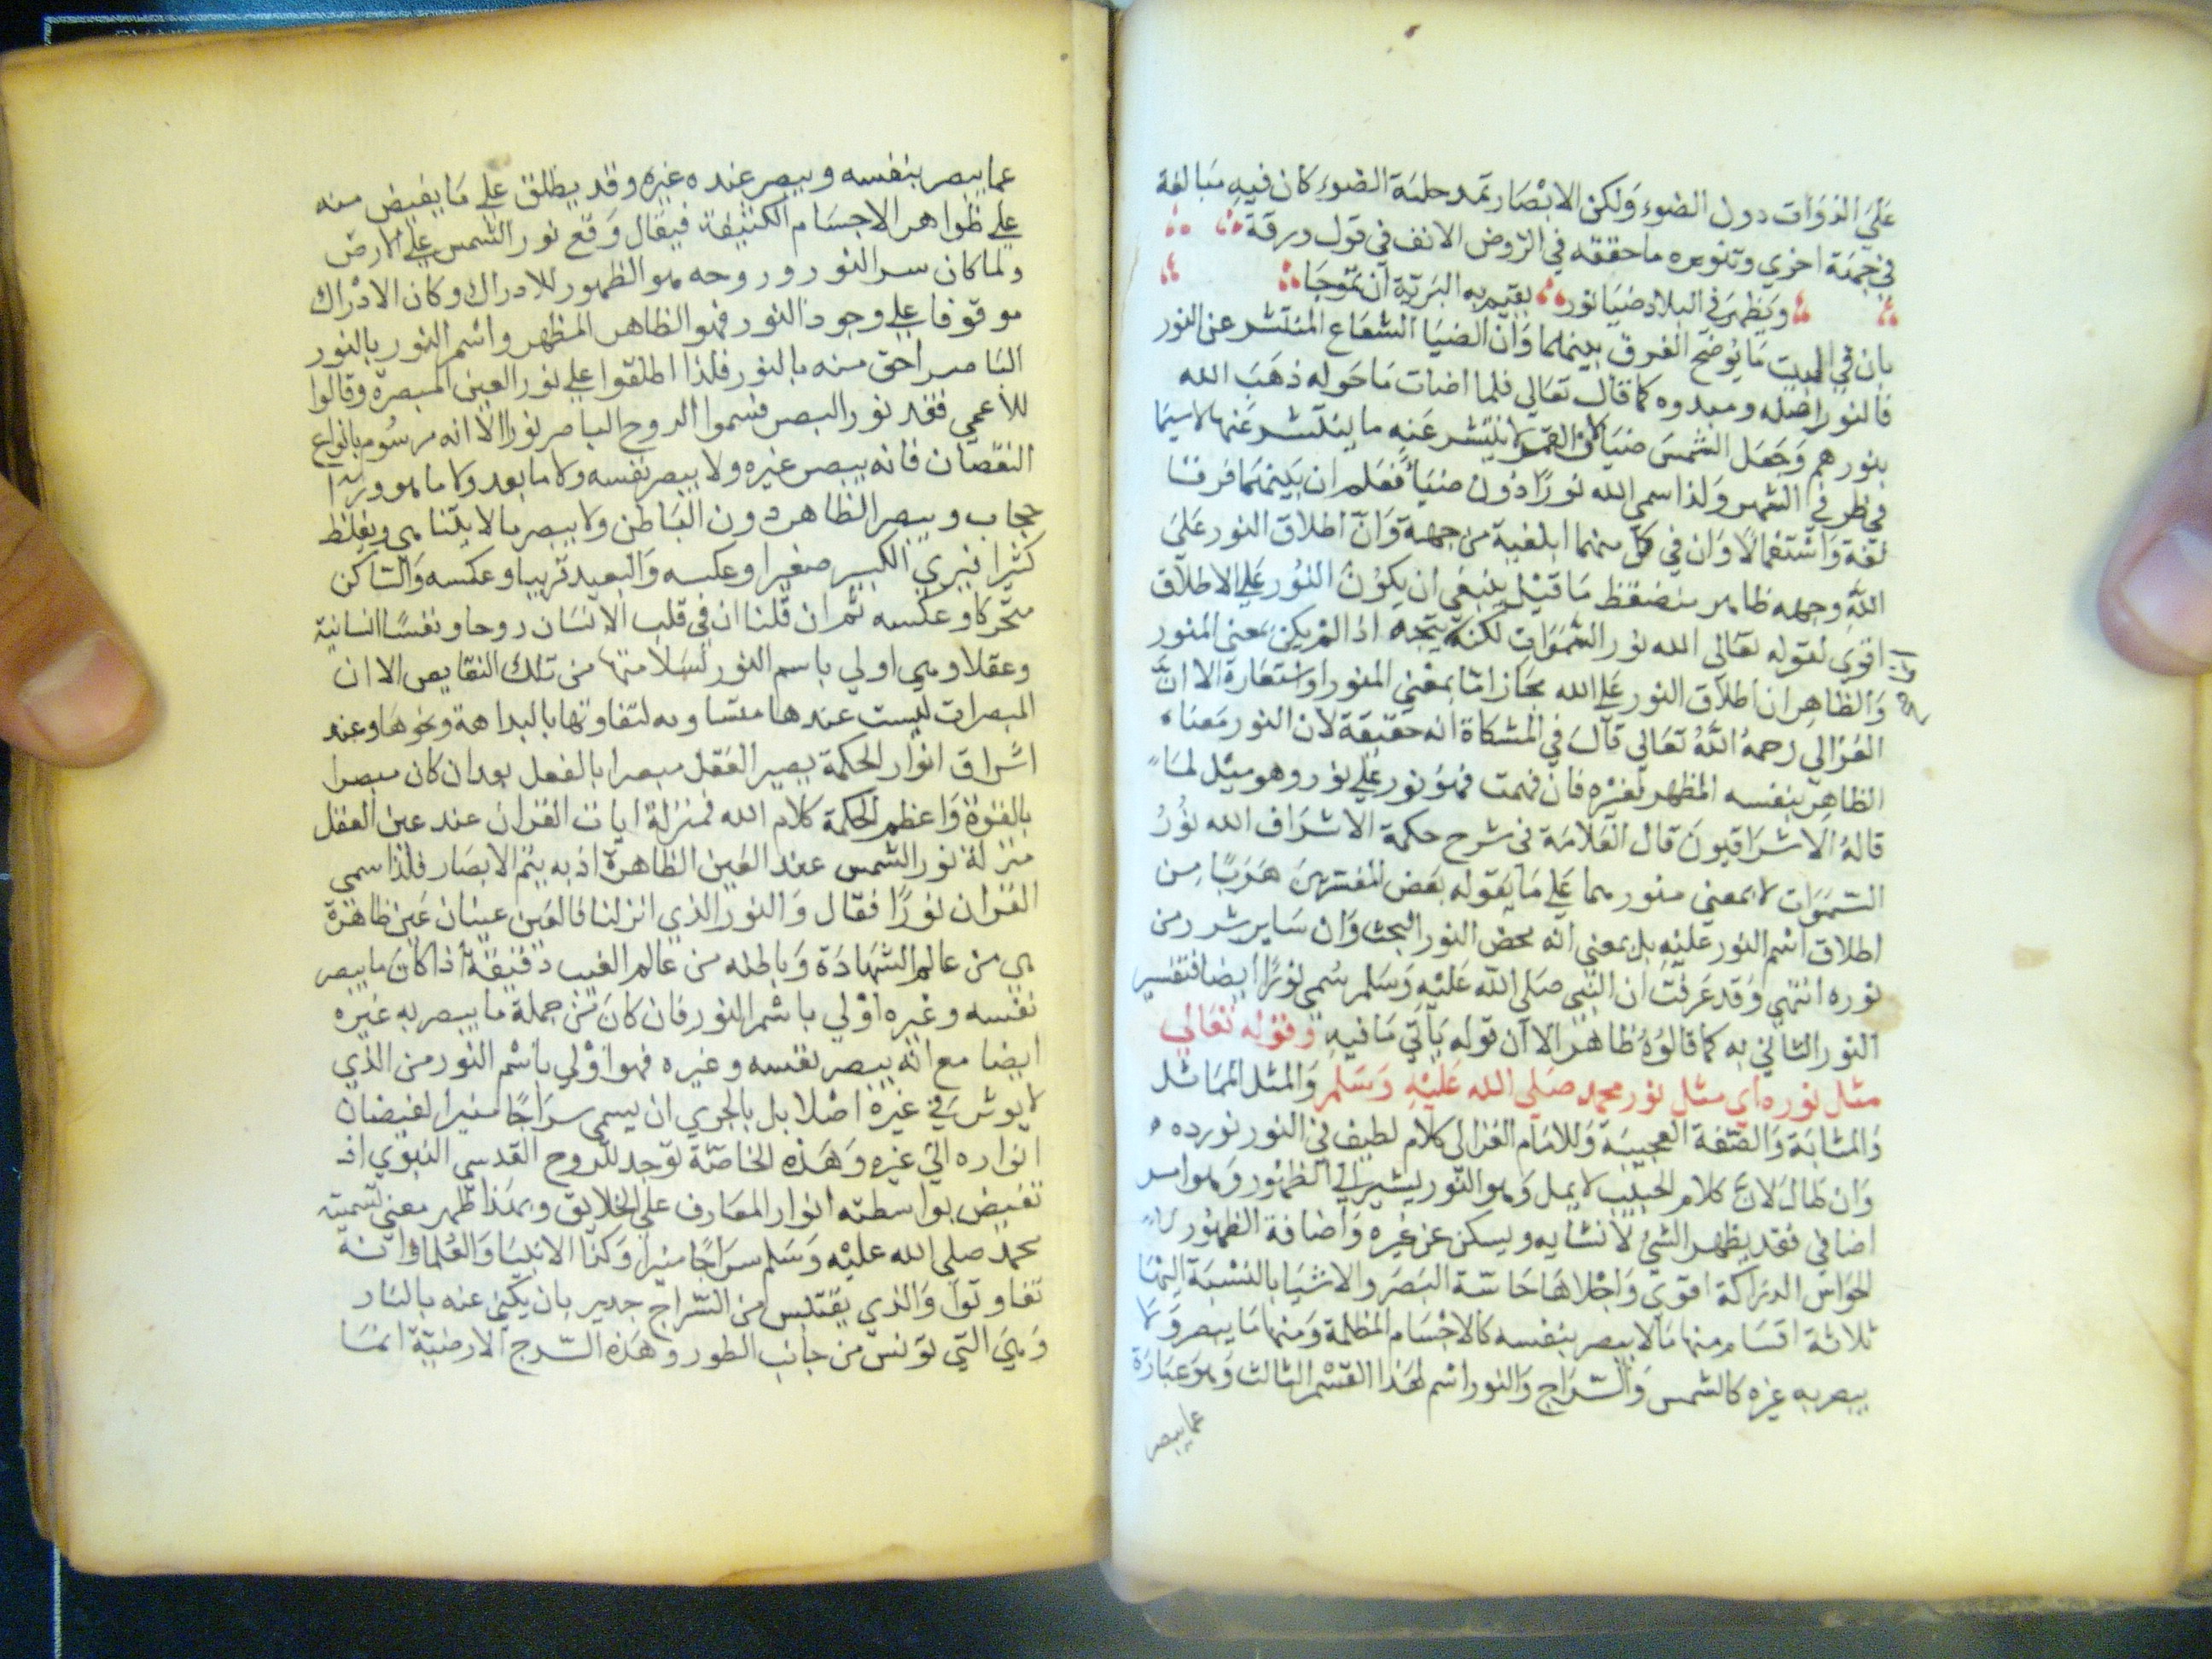 على الذوات دون الضوء ولكن الابصار تمد حلية الضوء كان فيه مبالغة
في جهة اخري وتنويره ما حققه في الروض الانف في قول ورقة
ويظهر في البلاد ضيا نور يقيم به البرية ان تموجا
بان في البيت ما يوضح الفرق بينهما وان الضيا الشعاع المنتشر عن النور
فالنور اصله ومبدوه كما قال تعالي فلما اضات ما حوله ذهب الله
بنورهم وجعل الشمس ضيا لان القمر لا ينتشر عنه ما ينتشر عنها لاسيما
في طرفي الشهر ولذا سمي الله نورا دون ضيا فعلم ان بينهما فرقا
لغة واستعمالا وان في كل منهما ابلغية من جهة وان اطلاق النور علي
الله وجهه ظاهر ما قيل ينبغي ان يكون النور علي الاطلاق
اقوي لقوله تعالي الله نور السموات لكنه يتجه اذا لم يكن بمعني المنور
والظاهر ان اطلاق النور علي الله مجاز اما بمعني المنور او استعارة الا ان
الغزالي رحمه الله تعالي قال في المشكاة انه حقيقة لان النور معناه
الظاهر بنفسه المظهر لغيره فان فهمت فهو نور علي نور وهو ميل لما
قاله الاشراقيون قال العلامة في شرح حكمة الاشراف الله نور
السموات لا بمعني منورهما علي ما يقوله بعض المفسرين هربا من
اطلاق اسم النور عليه بل بمعني انه محض النور البحث وان ساير شرر من
نوره انتهي وقد عرفت ان النبي صلي الله عليه وسلم سمي نورا ايضا فتفسير
النور الثاني به كما قالوه ظاهر الا ان قوله ياتي ما فيه وقوله تعالي
مثل نوره اي مثل نور محمد صلي الله عليه وسلم والمثل المماثل
والمثابة والصفة العجيبة وللامام الغزالي كلام لطيف في النور نورده
وان طال لان كلام الحبيب لا يمل وهو النور يشير الي الظهور وهو امر
اضافي فقد يظهر الشي لانشايه ويسكن عن غيره واضافة الظهور
الحواس الدراكة اقوي واجلاها حاسة البصر والاشيا بالنسبة اليها
ثلاثة اقسام منها ما لا يبصر بنفسه كالاجسام المظلمة ومنها ما يبصر ولا
يبصر به غيره كالشمس والسراج والنور اسم لهذا القسم الثالث وهو عبارة
عما يبصر
عما يبصر بنفسه ويبصر عنده غيره وقد يطلق علي ما يفيض منه
علي ظواهر الاجسام الكثيفة فيقال وقع نور الشمس علي الارض
ولما كان سر النور وروحه هو الظهور للادراك وكان الادراك
موقوفا علي وجود النور فهو الظاهر المظهر واسم النور بالنور
الباصر احق منه بالنور فلذا اطلقوا علي نور العين المبصرة وقالوا
للاعمي فقد نور البصر فسموا الروح الباصر نورا الا انه مرسوم بانواع
النقصان فانه يبصر غيره ولا يبصر نفسه ولا ما بعد ولا ما هو ورا
حجاب ويبصر الظاهر دون الباطن ولا يبصر ما لا يتناهي ويغلط
كثيرا فيري الكبير صغيرا وعكسه والبعيد قريبا وعكسه والساكن
متحركا وعكسه ثم ان قلنا ان في قلب الانسان روحا ونفسا انسانية
وعقلا وهي اولي باسم النور لسلامتها من تلك النقايص الا ان
المبصرات ليست عندها متساويه لتفاوتها بالبداهة ونحوها وعند
اشراق انوار الحكمة يصير العقل مبصرا بالفعل بعد ان كان مبصرا
بالقوة واعظم الحكمة كلام الله فمنزلة ايات القران عند عين العقل
منزلة نور الشمس عند العين الظاهرة اذ به يتم الابصار فلذا سمي
القران نورا فقال والنور الذي انزلنا فالعين عينان عين ظاهرة
هي من عالم الشهادة وباطنه من عالم الغيب دقيقة اذا كان ما يبصر
نفسه وغيره اولي باسم النور فان كان من جملة ما يبصر به غيره
ايضا مع انه يبصر نفسه وغيره فهو اولي باسم النور من الذي
لا يوثر في غيره اصلا بل بالحري ان يسمي سراجا منيرا لفيضان
انواره الي غيره وهذه الخاصة توجد للروح القدسي النبوي اذ
تفيض بواسطته انوار المعارف علي الخلايق وبهذا ظهر معني تسمية
محمد صلي الله عليه وسلم سراجا منيرا وكذا الانبيا والعلما وانه
تفاوتوا والذي يقتبس من السراج جدير بان يكني عنه بالنار
وهي التي تونس من جانب الطور وهذه السرج الارضية انما